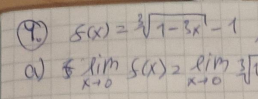 9. f(x) = ∛(1-3x) - 1
a) lim x→0 f(x) = lim x→0 ∛1